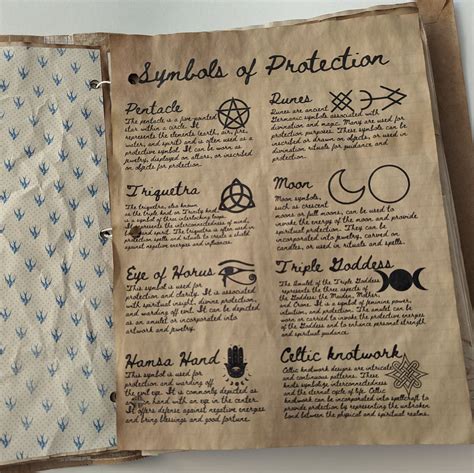 Symbols of Protection
Pentacle
The pentacle is a five-pointed
star within a circle. It
represents the elements (earth, air, fire,
water, and spirit) and is often used as a
protective symbol. It can be worn as
jewelry, displayed on altars, or inscribed
on objects for protection.
Triquetra
The triquetra, also known
as the triple knot or Trinity knot,
is a symbol of three interlocking loops.
It represents the interconnectedness of mind,
and spirit. The triquetra is often used in
protection spells and rituals to create a shield
against negative energies and influences.
Eye of Horus
This symbol is used for
protection and clarity. It is associated
with spiritual insight, divine protection,
and warding off evil. It can be depicted
as an amulet or incorporated into
artwork and jewelry.
Hansa Hand
This symbol is used for
protection and warding off
the evil eye. It is commonly depicted as
an open hand with an eye in the center.
It offers defense against negative energies and
bring blessings and good fortune.
Runes
Runes are ancient
Germanic symbols associated with
divination and magic. Many are used for
protection purposes. These symbols can be
inscribed or drawn on objects, or used in
divination rituals for guidance and
protection.
Moon
Moon symbols,
such as crescent
moons or full moons, can be used to
invoke the energy of the moon and provide
spiritual protection. They can be
incorporated into jewelry, carved on
candles, or used in rituals and spells.
Triple Goddess
The Amulet of the Triple Goddess
represents the three aspects of
the Goddess: the Maiden, Mother,
and Crone. It is a symbol of feminine power,
intuition, and protection. The amulet can be
worn or carried to invoke the protective energies
of the Goddess and to enhance personal strength
and spiritual guidance.
Celtic knotwork
Celtic knotwork designs are intricate
and continuous patterns. These
knots symbolize interconnectedness
and the eternal cycle of life. Celtic
knotwork can be incorporated into spellcraft to
provide protection by representing the unbroken
bond between the physical and spiritual realms.